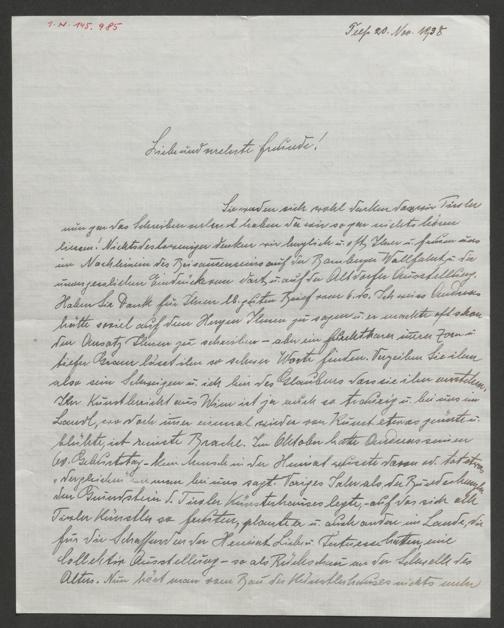 I. N. 145.985
Telfs 20. Nov. 1938
Liebe und verehrte Freunde!
Sie werden sich wohl denken dass wir Tiroler
nun gar das Schreiben verlernt haben da wir so gar nichts hören
liessen! Nichtsdestoweniger denken wir tuglich u. oft Ihrer u. freuen uns
im Nachheinein des Beisammenseins auf der Bamberger Wallfahrt u. der
unvergesslichen Eindrücke von dort u. auf der Altdorfer Ausstellung.
Haben Sie Dank für Ihren lb. guten Brief vom 6. ds. Ich weiss Andreas
hätte soviel auf dem Herzen Ihnen zu sagen u. er machte oft schon
den Ansatz Ihnen zu schreiben – aber ein furchtbarer innerer Zorn u.
tiefer Gram lässt ihn so schwer Worte finden. Verzeihen Sie ihm
also sein Schweigen u. ich bin des Glaubens dass sie ihn verstehen.
Ihr Kunstbericht aus Wien ist ja auch so traurig u. bei uns im
Landl, wo doch immer einmal wieder von Kunst etwas gewusst u.
blühte, ist reinste Brache. Im Oktober hatte Andreas seinen
60. Geburtstag – kein Mensch in der Heimat wusste davon od. tat etwas
dergleichen wie man bei uns sagt. Voriges Jahr als der
den Grundstein d. Tiroler Künstlerhauses legte, – auf das sich alle
Tiroler Künstler so freuten, plante er u. auch andere im Lande, die
für die Schaffenden der Heimat Liebe u. Interesse hatten, eine
Collektiv Ausstellung – so als Rückschau an der Schwelle des
Alters. Nun hört man vom Bau des Künstlerhauses nichts mehr